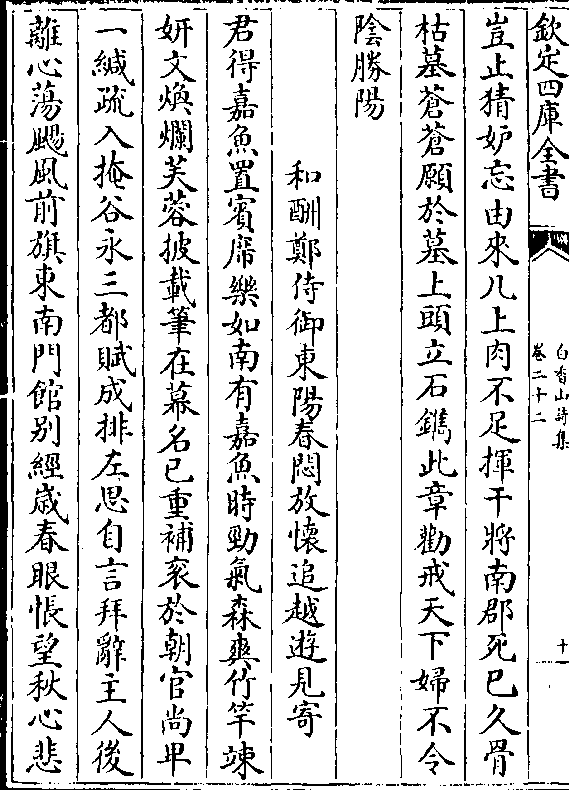 欽定四庫全書
白香山詩集
卷二十二
十
豈止猜妒忘由來几上肉不足揮干將南郡死已久骨
枯墓蒼蒼願於墓上頭立石鐫此章勸戒天下婦不令
陰勝陽
和酬鄭侍御東陽春悶放懷追越遊見寄
君得嘉魚置賓席樂如南有嘉魚時勁氣森爽竹竿竦
妍文煥爛芙蓉披載筆在幕名已重補衮於朝官尚卑
一緘疏入掩谷永三都賦成排左思自言拜辭主人後
離心蕩颺風前旗東南門館別經歲春眼悵望秋心悲